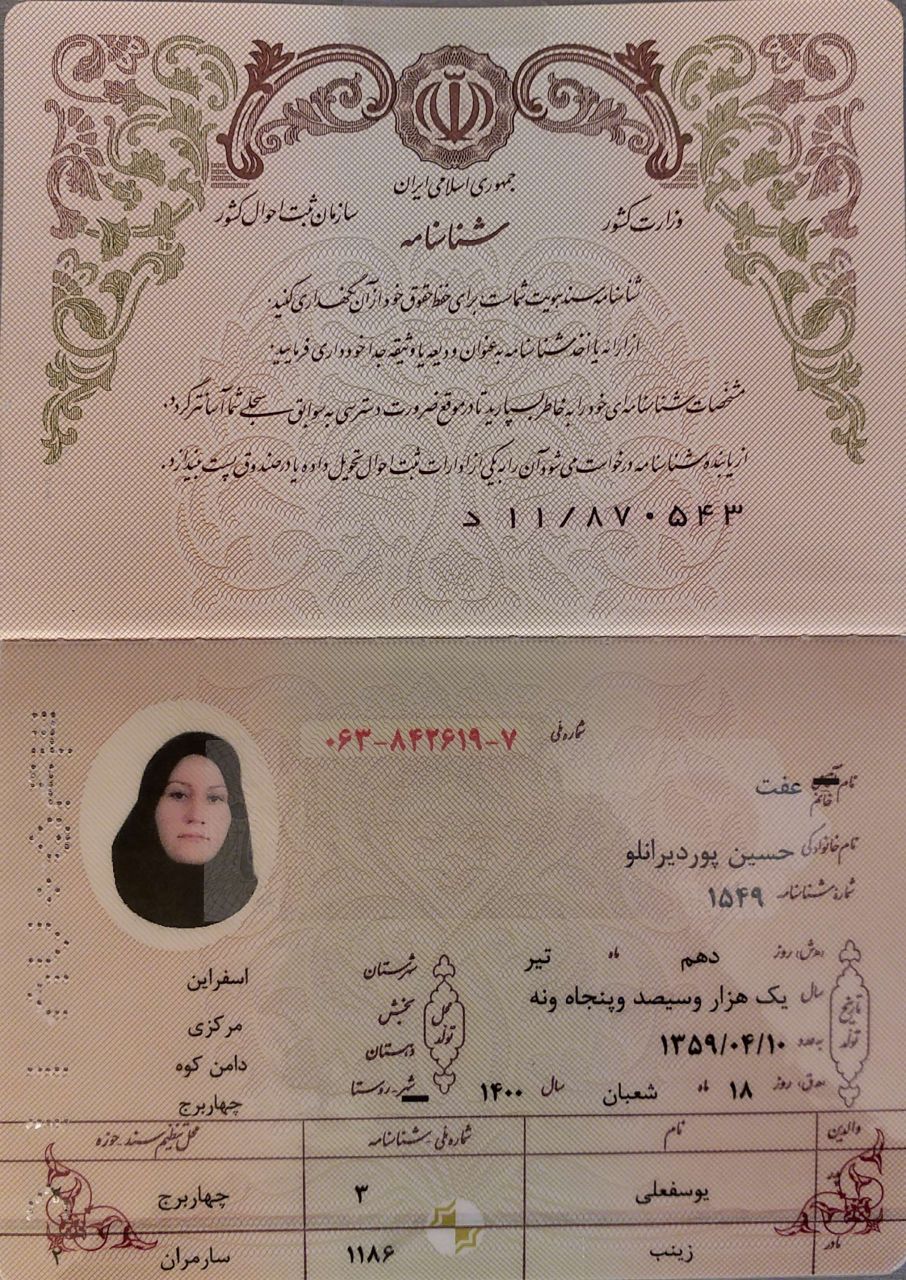 جمهوری اسلامی ایران
وزارت کشور
سازمان ثبت احوال کشور
شناسنامه
شناسنامه سند هویت شماست برای حفظ حقوق خود از آن نگهداری کنید.
از ارائه یا اخذ شناسنامه به عنوان ودیعه یا وثیقه جدا خودداری فرمایید.
مشخصات شناسنامه‌ای خود را به خاطر بسپارید تا در موقع ضرورت دسترسی به سوابق سجلی شما آسانتر گردد.
از یابنده شناسنامه درخواست می شود آن را به یکی از ادارات ثبت احوال تحویل داده یا در صندوق پست بیندازد.
د ۱۱/۸۷۰۵۴۳
شماره ملی ۰۶۳-۸۴۲۶۱۹-۷
نام خانم عفت
نام خانوادگی حسین پوردیرانلو
شماره شناسنامه ۱۵۴۹
تاریخ تولد
روز دهم ماه تیر
سال یک هزار وسیصد وپنجاه ونه
به عدد ۱۳۵۹/۰۴/۱۰
روز ۱۸ ماه شعبان سال ۱۴۰۰
محل تولد
شهرستان اسفراین
بخش مرکزی
دهستان دامن کوه
شهر-روستا چهاربرج
والدین نام شماره ملی-شناسنامه محل تنظیم سند-حوزه
پدر یوسفعلی ۳ چهاربرج
مادر زینب ۱۱۸۶ سارمران
۲